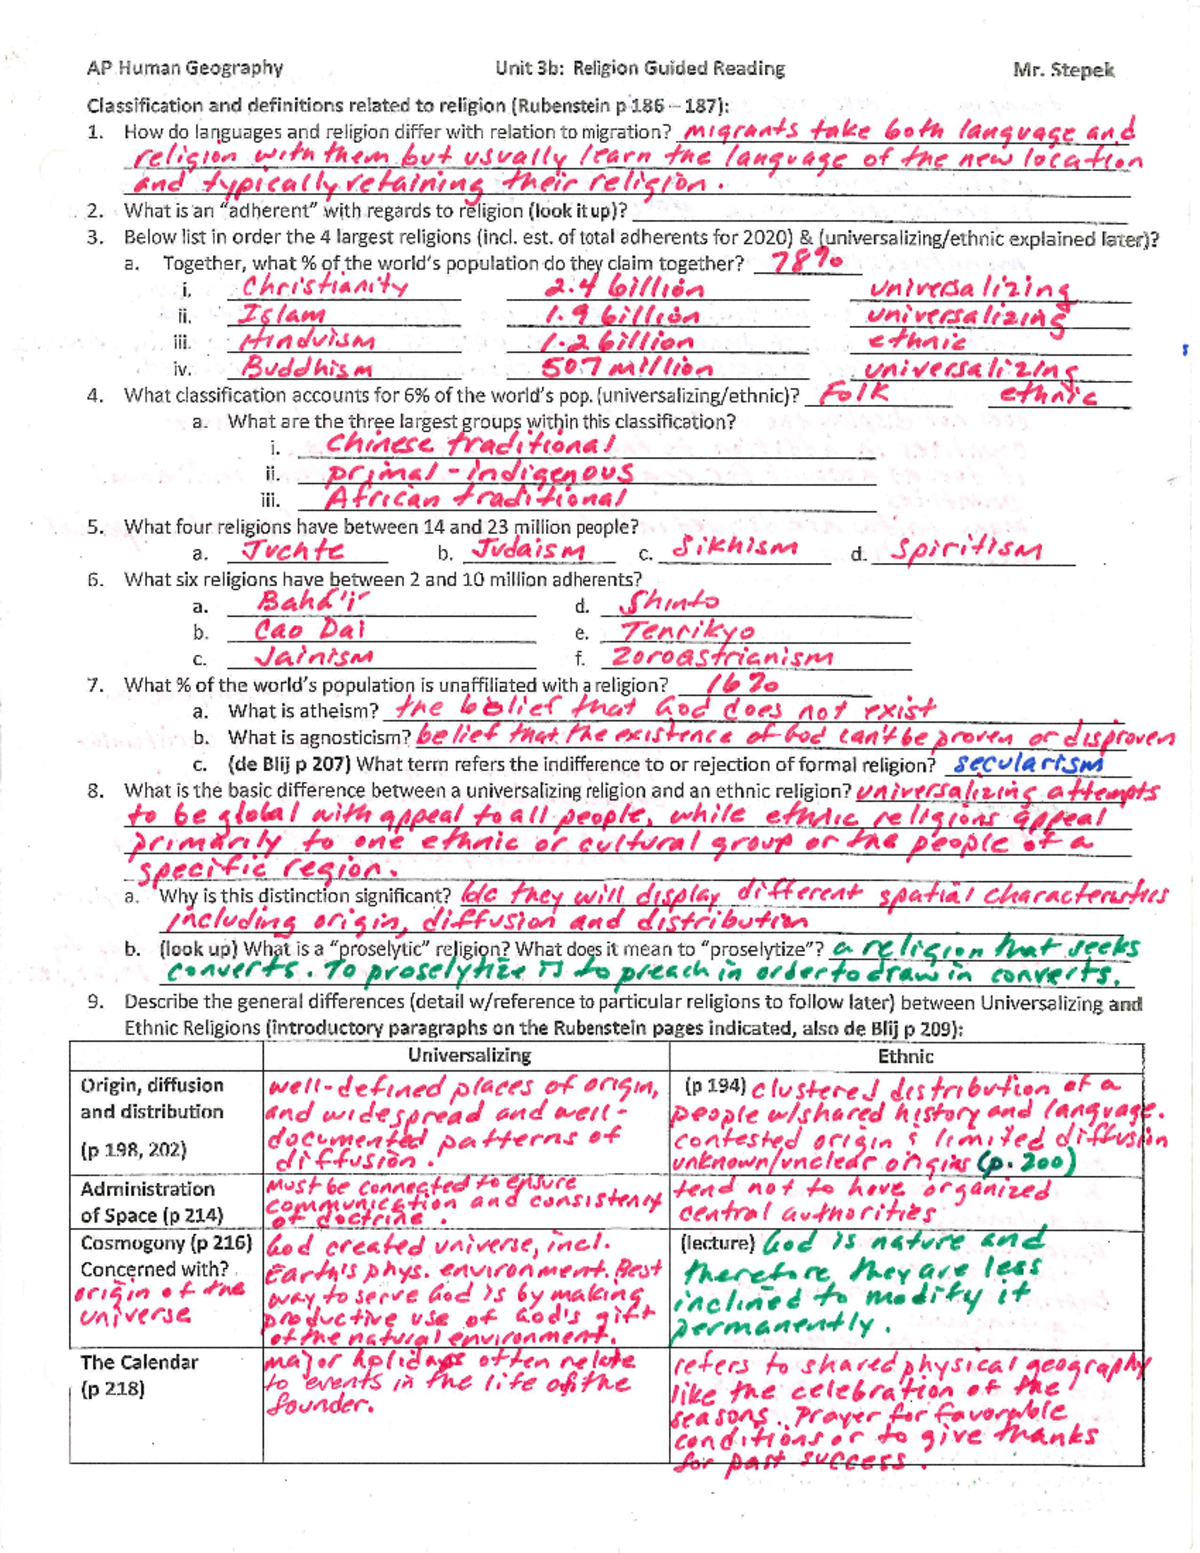 AP Human Geography Unit 3b: Religion Guided Reading Mr. Stepek
Classification and definitions related to religion (Rubenstein p 186 – 187):
1. How do languages and religion differ with relation to migration? migrants take both language and
religion with them but usually learn the language of the new location
and typically retaining their religion.
2. What is an "adherent" with regards to religion (look it up)?
3. Below list in order the 4 largest religions (incl. est. of total adherents for 2020) & (universalizing/ethnic explained later)?
a. Together, what % of the world's population do they claim together? 78%
i. Christianity 2.4 billion universalizing
ii. Islam 1.9 billion universalizing
iii. Hinduism 1.2 billion ethnic
iv. Buddhism 507 million universalizing
4. What classification accounts for 6% of the world's pop. (universalizing/ethnic)? Folk ethnic
a. What are the three largest groups within this classification?
i. Chinese traditional
ii. primal-indigenous
iii. African traditional
5. What four religions have between 14 and 23 million people?
a. Juchte b. Judaism c. Sikhism d. Spiritism
6. What six religions have between 2 and 10 million adherents?
a. Bahá'i d. Shinto
b. Cao Dai e. Tenrikyo
c. Jainism f. Zoroastrianism
7. What % of the world's population is unaffiliated with a religion? 16%
a. What is atheism? the belief that God does not exist
b. What is agnosticism? belief that the existence of God can't be proven or disproven
c. (de Blij p 207) What term refers the indifference to or rejection of formal religion? secularism
8. What is the basic difference between a universalizing religion and an ethnic religion? universalizing attempts
to be global with appeal to all people, while ethnic religions appeal
primarily to one ethnic or cultural group or the people of a
specific region.
a. Why is this distinction significant? b/c they will display different spatial characteristics
including origin, diffusion and distribution
b. (look up) What is a "proselytic" religion? What does it mean to "proselytize"? a religion that seeks
converts. To proselytize is to preach in order to draw in converts.
9. Describe the general differences (detail w/reference to particular religions to follow later) between Universalizing and
Ethnic Religions (introductory paragraphs on the Rubenstein pages indicated, also de Blij p 209):
Universalizing Ethnic
Origin, diffusion
and distribution
(p 198, 202)
well-defined places of origin,
and widespread and well-
documented patterns of
diffusion.
(p 194) clustered distribution of a
people w/shared history and language.
contested origin & limited diffusion
unknown/unclear origins (p. 200)
Administration
of Space (p 214)
Must be connected to ensure
communication and consistency
of doctrine.
tend not to have organized
central authorities
Cosmogony (p 216)
Concerned with?
origin of the
universe
God created universe, incl.
Earth's phys. environment. Best
way to serve God is by making
productive use of God's gift
of the natural environment.
(lecture) God is nature and
therefore they are less
inclined to modify it
permanently.
The Calendar
(p 218)
major holidays often relate
to events in the life of the
founder.
refers to shared physical geography
like the celebration of the
seasons. Prayer for favorable
conditions or to give thanks
for past success.